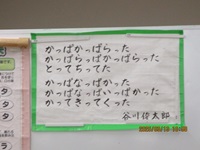 かっぱかっぱらった
かっぱらっぱかっぱらった
とってちってた
かっぱなっぱかった
かっぱなっぱいっぱかった
かってきってくった
谷川俊太郎
タ
タ